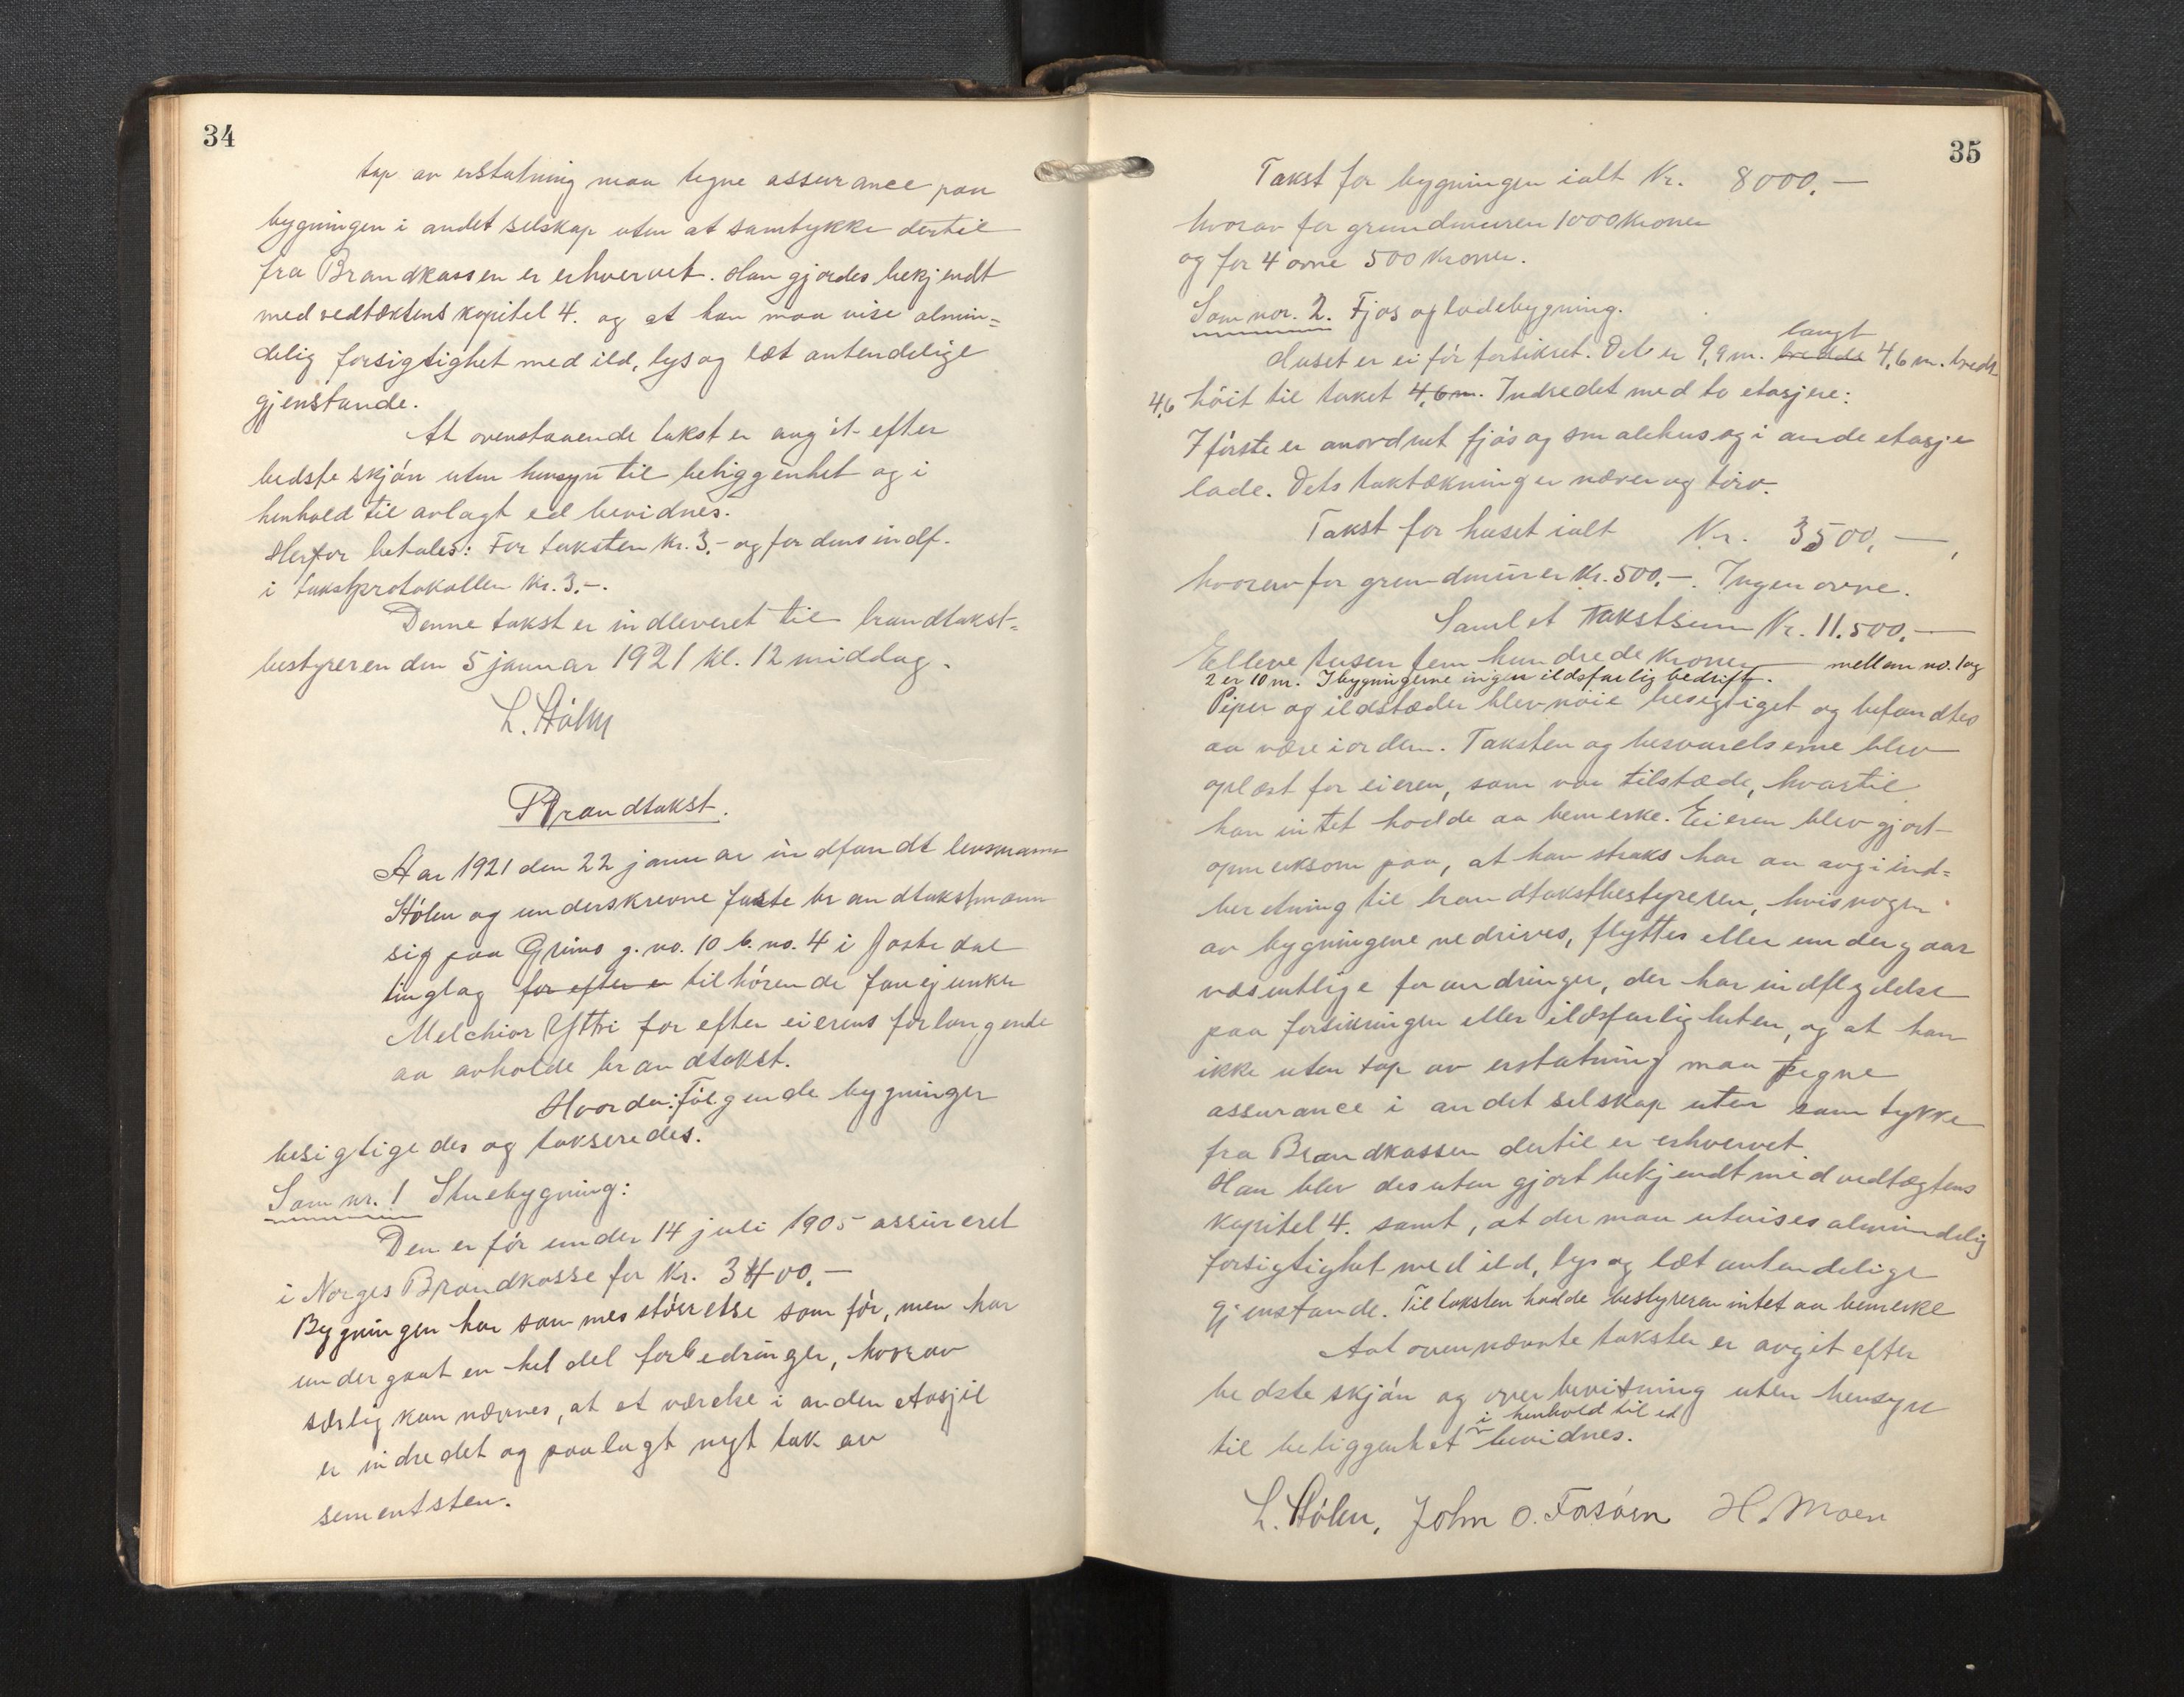 34
tap av erstatning maa tegne assurance paa
bygningen i andet selskap uten at samtykke dertil
fra Brandkassen er erhvervet. Han gjordes bekjendt
med vedtæktens kapitel 4. og at han maa vise almin=
delig forsigtighet med ild, lys og læt antendelige
gjenstande.
At ovenstaaende takst er avgit efter
bedste skjön uten hensyn til beliggenhet og i
henhold til avlagt ed bevidnes.
Herfor betales: For taksten kr. 3.- og for dens indf.
i takstprotokollen kr. 3.-.
Denne takst er indleveret til brandtakst-
bestyreren den 5 januar 1921 kl. 12 middag.
L. Hölen
Brandtakst.
Aar 1921 den 22 januar indfandt lensmann
Hölen og underskrevne faste brandtakstmænn
sig paa Grimo g. no. 10 b. no. 4 i Jostedal
tinglag for efter e tilhörende
Melchior Yttri for efter eierens forlangende
aa avholde brandtakst.
Hvorda: Fölgende bygninger
besigtigedes og takseredes.
Som nr. 1 Stuebygning:
Den er för under 14 juli 1905 assureret
i Norges Brandkasse for Kr. 3400.-
Bygningen har sammes störrelse som för, men har
undergaat en hel del forbedringer, hvorav
særlig kan nævnes, at et værelse i anden etasje
er indredet og paalagt nyt tak av
sementsten.
35
Takst for bygningen ialt Kr. 8000.-
hvorav for grundmuren 1000 kroner
og for 4 ovne 500 kroner.
Som nor. 2. Fjos og ladebygning.
langt
Huset er ei för forsikret. Det er 9,9 m. bredde 4,6 m. bredt
4,6 höit til taket 4,6 m. Indredet med to etasjer:
I förste er anordnet fjös og smalehus og i ande etasje
lade. Dets taktækning er næver og torv.
Takst for huset ialt Kr. 3500.-,
hvorav for grundmuren Kr. 500.-. Ingen ovne.
Samlet takstsum Kr. 11.500.-
Elleve tusen fem hundrede kroner mellem no. 1 og
2 er 10 m. I bygningerne ingen ildsfarlig bedrift.
Piper og ildstæder blev nöie besigtiget og befandtes
aa være i orden. Taksten og besvarelserne blev
oplæst for eieren, som var tilstæde, hvartil
han intet hadde aa bemerke. Eieren blev gjort
opmerksom paa, at han straks har aa avgi ind=
beretning til brandtakstbestyreren, hvis nogen
av bygningene nedrives, flyttes eller undergaar
væsentlige forandringer, der har indflydelse
paa forsikringen eller ildsfarligheten, og at han
ikke uten tap av erstatning maa tegne
assurance i andet selskap uten samtykke
fra Brandkassen dertil er erhvervet.
Han blev desuten gjort bekjendt med vedtægtens
kapitel 4. samt, at der maa utvises almindelig
forsigtighet med ild, lys og læt antendelige
gjenstande. Til taksten hadde bestyreren intet aa bemerke
At ovennævnte takster er avgit efter
bedste skjön og overbevisning uten hensyn
i henhold til ed
til beliggenhet bevidnes.
L. Hölen, John O. Fosöen H. Moen